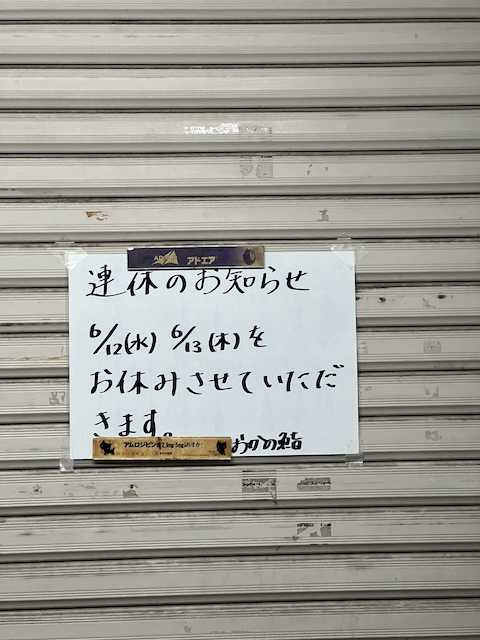 アドエア
連休のお知らせ
6/12(水) 6/13(木)を
お休みさせていただ
きます。
アムロジピン
おかめ鮨